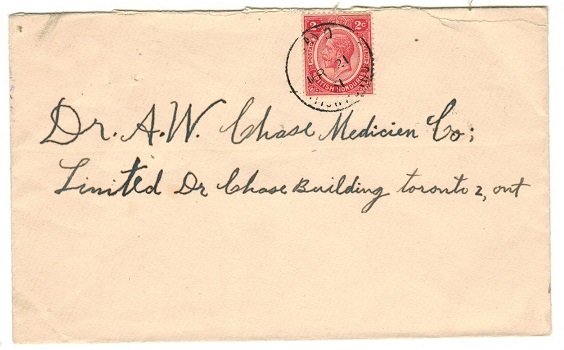 2c 2c
BRITISH HONDURAS
Dr. A.W. Chase Medicien Co;
Limited Dr Chase Building toronto 2, ont